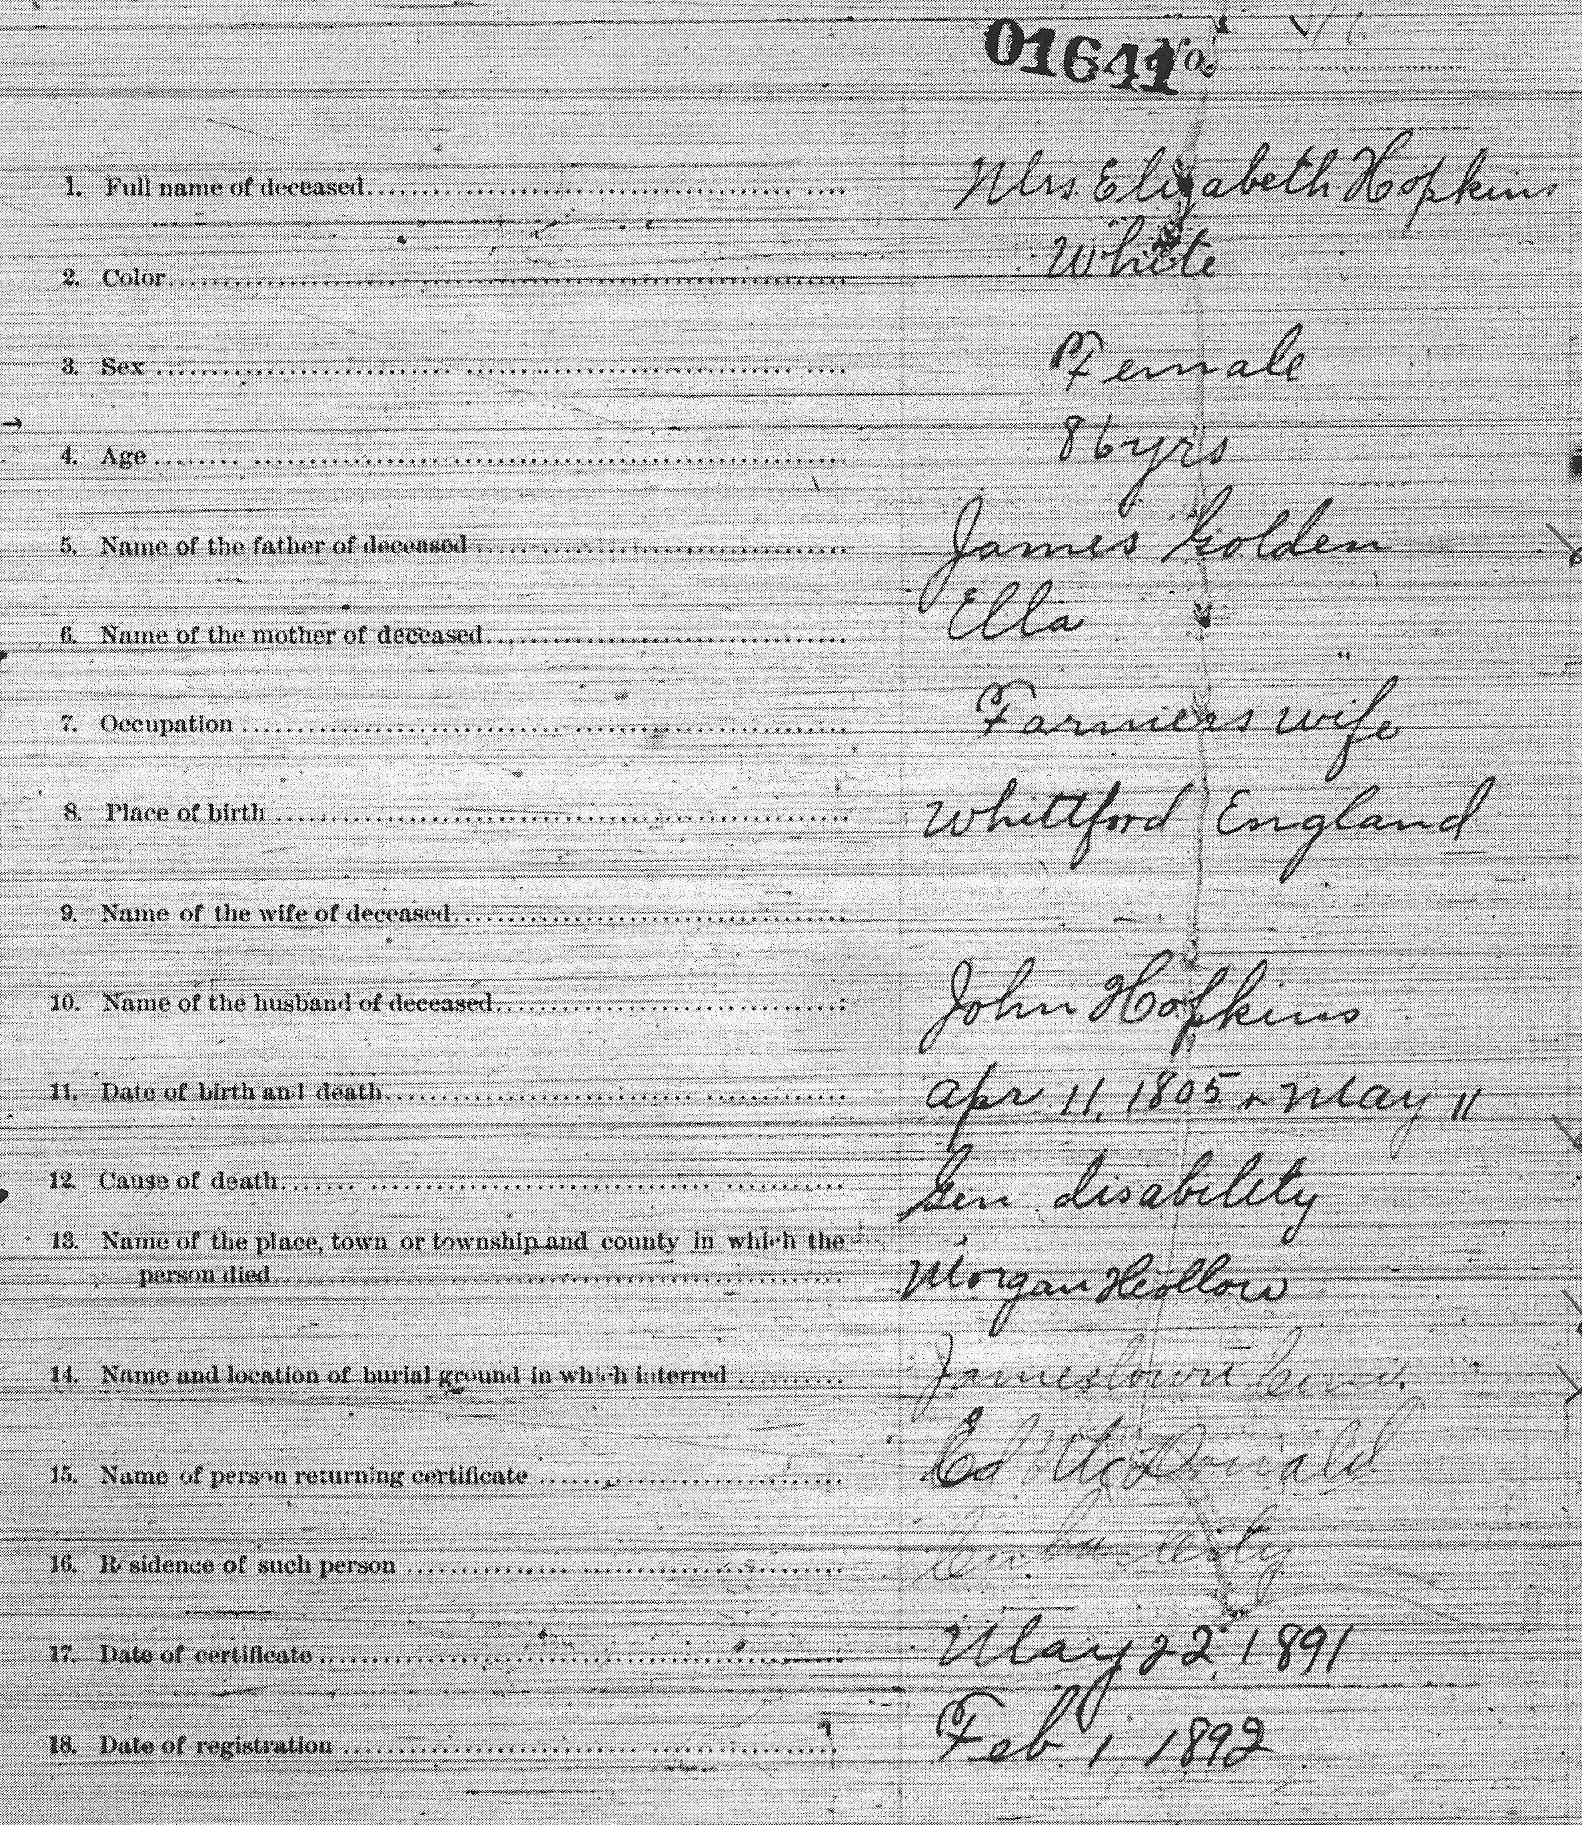 01641 No.
1. Full name of deceased Mrs Elizabeth Hopkins
2. Color White
3. Sex Female
4. Age 86 yrs
5. Name of the father of deceased James Golden
6. Name of the mother of deceased Ella "
7. Occupation Farmers wife
8. Place of birth Whittford England
9. Name of the wife of deceased
10. Name of the husband of deceased John Hopkins
11. Date of birth and death Apr 11, 1805 + May 11
12. Cause of death Gen disability
13. Name of the place, town or township and county in which the
person died Morgan Hollow
14. Name and location of burial ground in which interred Jamestown Cem.
15. Name of person returning certificate Ed McDonald
16. Residence of such person City
17. Date of certificate May 22, 1891
18. Date of registration Feb 1, 1892